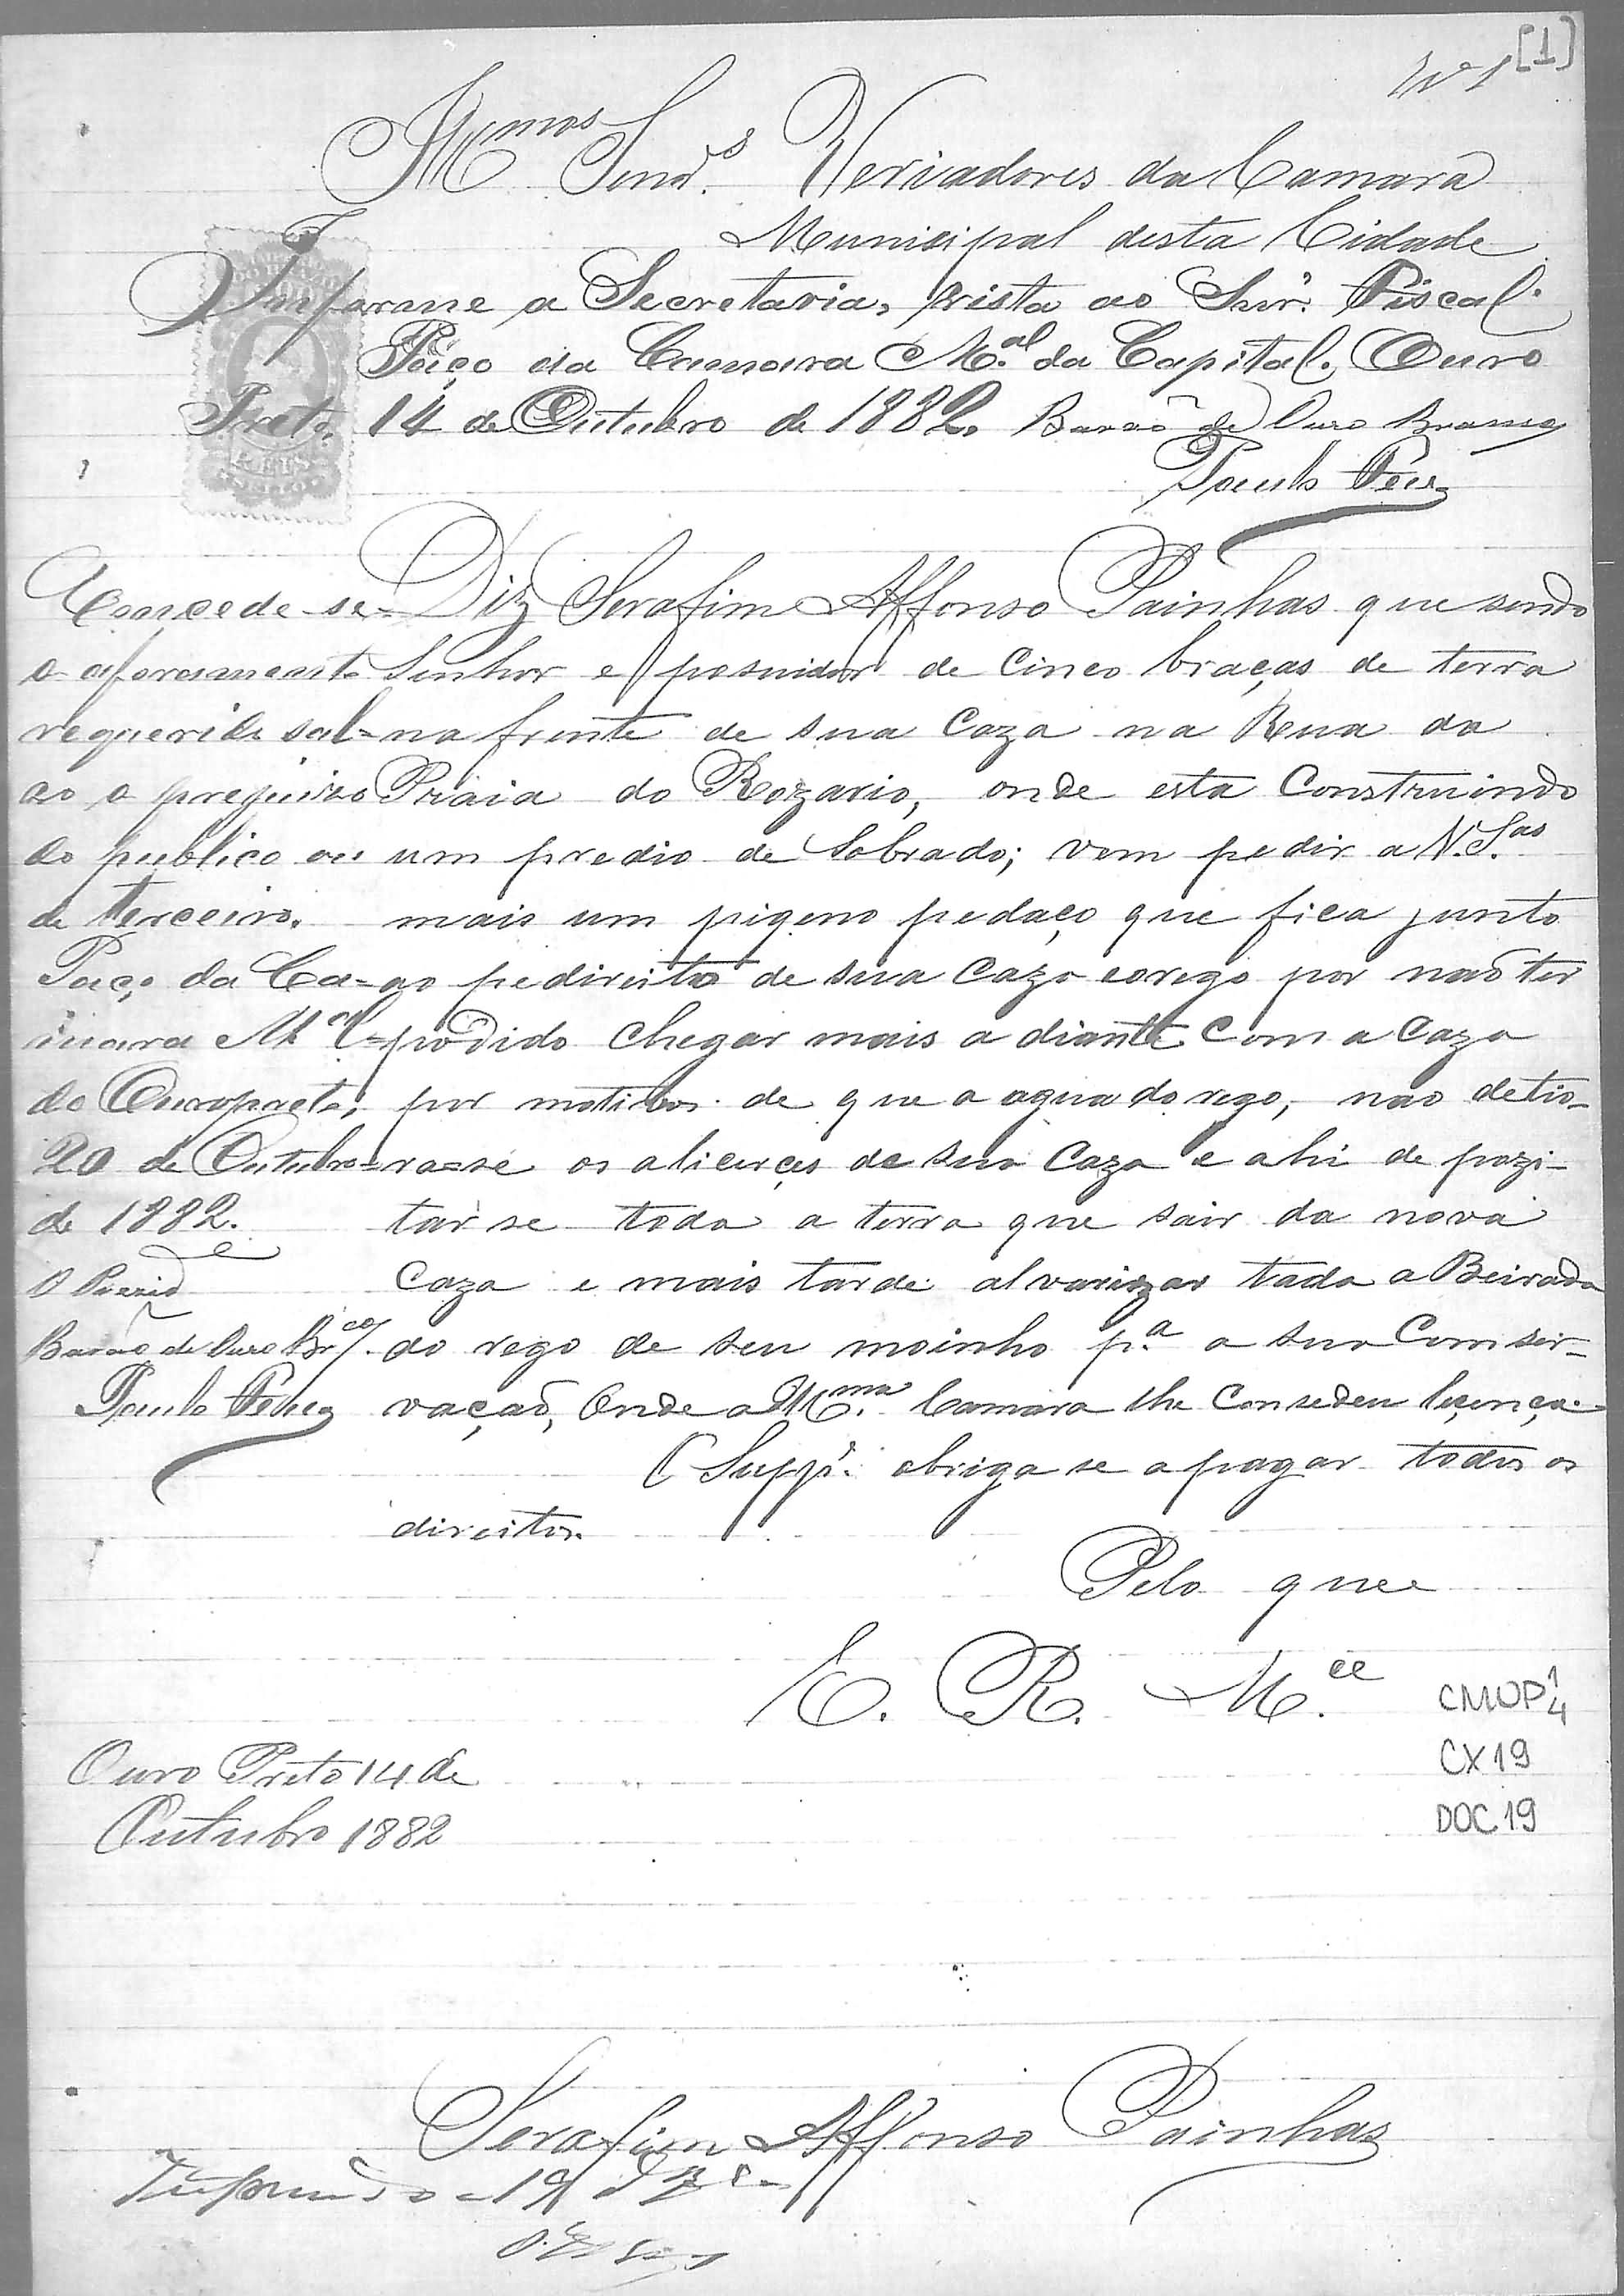 Nº 1 [1]
Illmos Senrs. Veriadores da Camara
Municipal desta Cidade
Informe a Secretaria, vista ao Snr. Fiscal.
Paço da Camara M.al da Capital. Ouro
Preto, 14 de Outubro de 1882. Barão de Ouro Branco
Paulo
Concede-se
o aforamento
requerido sal=
vo o prejuizo
do publico ou
de terceiro.
Paço da Ca=
mara M.al
do Ouropreto,
20 de Outubro
de 1882.
O Prezid
Barão de Ouro Br.co
Paulo
Diz Serafim Affonso Painhas que sendo
Senhor e posuidor de Cinco braças de terra
na frente de sua Caza na Rua da
Praia do Rozario, onde esta Construindo
um predio de Sobrado; vem pedir a V. S.as
mais um piqeno pedaço que fica junto
ao pedireito de sua Caza e orego por não ter
podido Chegar mais a diante Com a Caza
por motivos de que a agua do rego, não detio-
ra=se os alicerçes de sua Caza e ahi de pozi-
tar se toda a terra que sair da nova
Caza e mais tarde alvarizar toda a Beirada
do rego de seu moinho p.a a sua Comser-
vação, Onde a Ill.ma Camara lhe Consedeu leçença.
O Supp.e obriga se a pagar todos os
direitos.
Pelo que
E. R. M.ce
CMOP 1/4
CX 19
DOC 19
Ouro Preto 14 de
Outubro 1882
Serafim Affonso Painhas